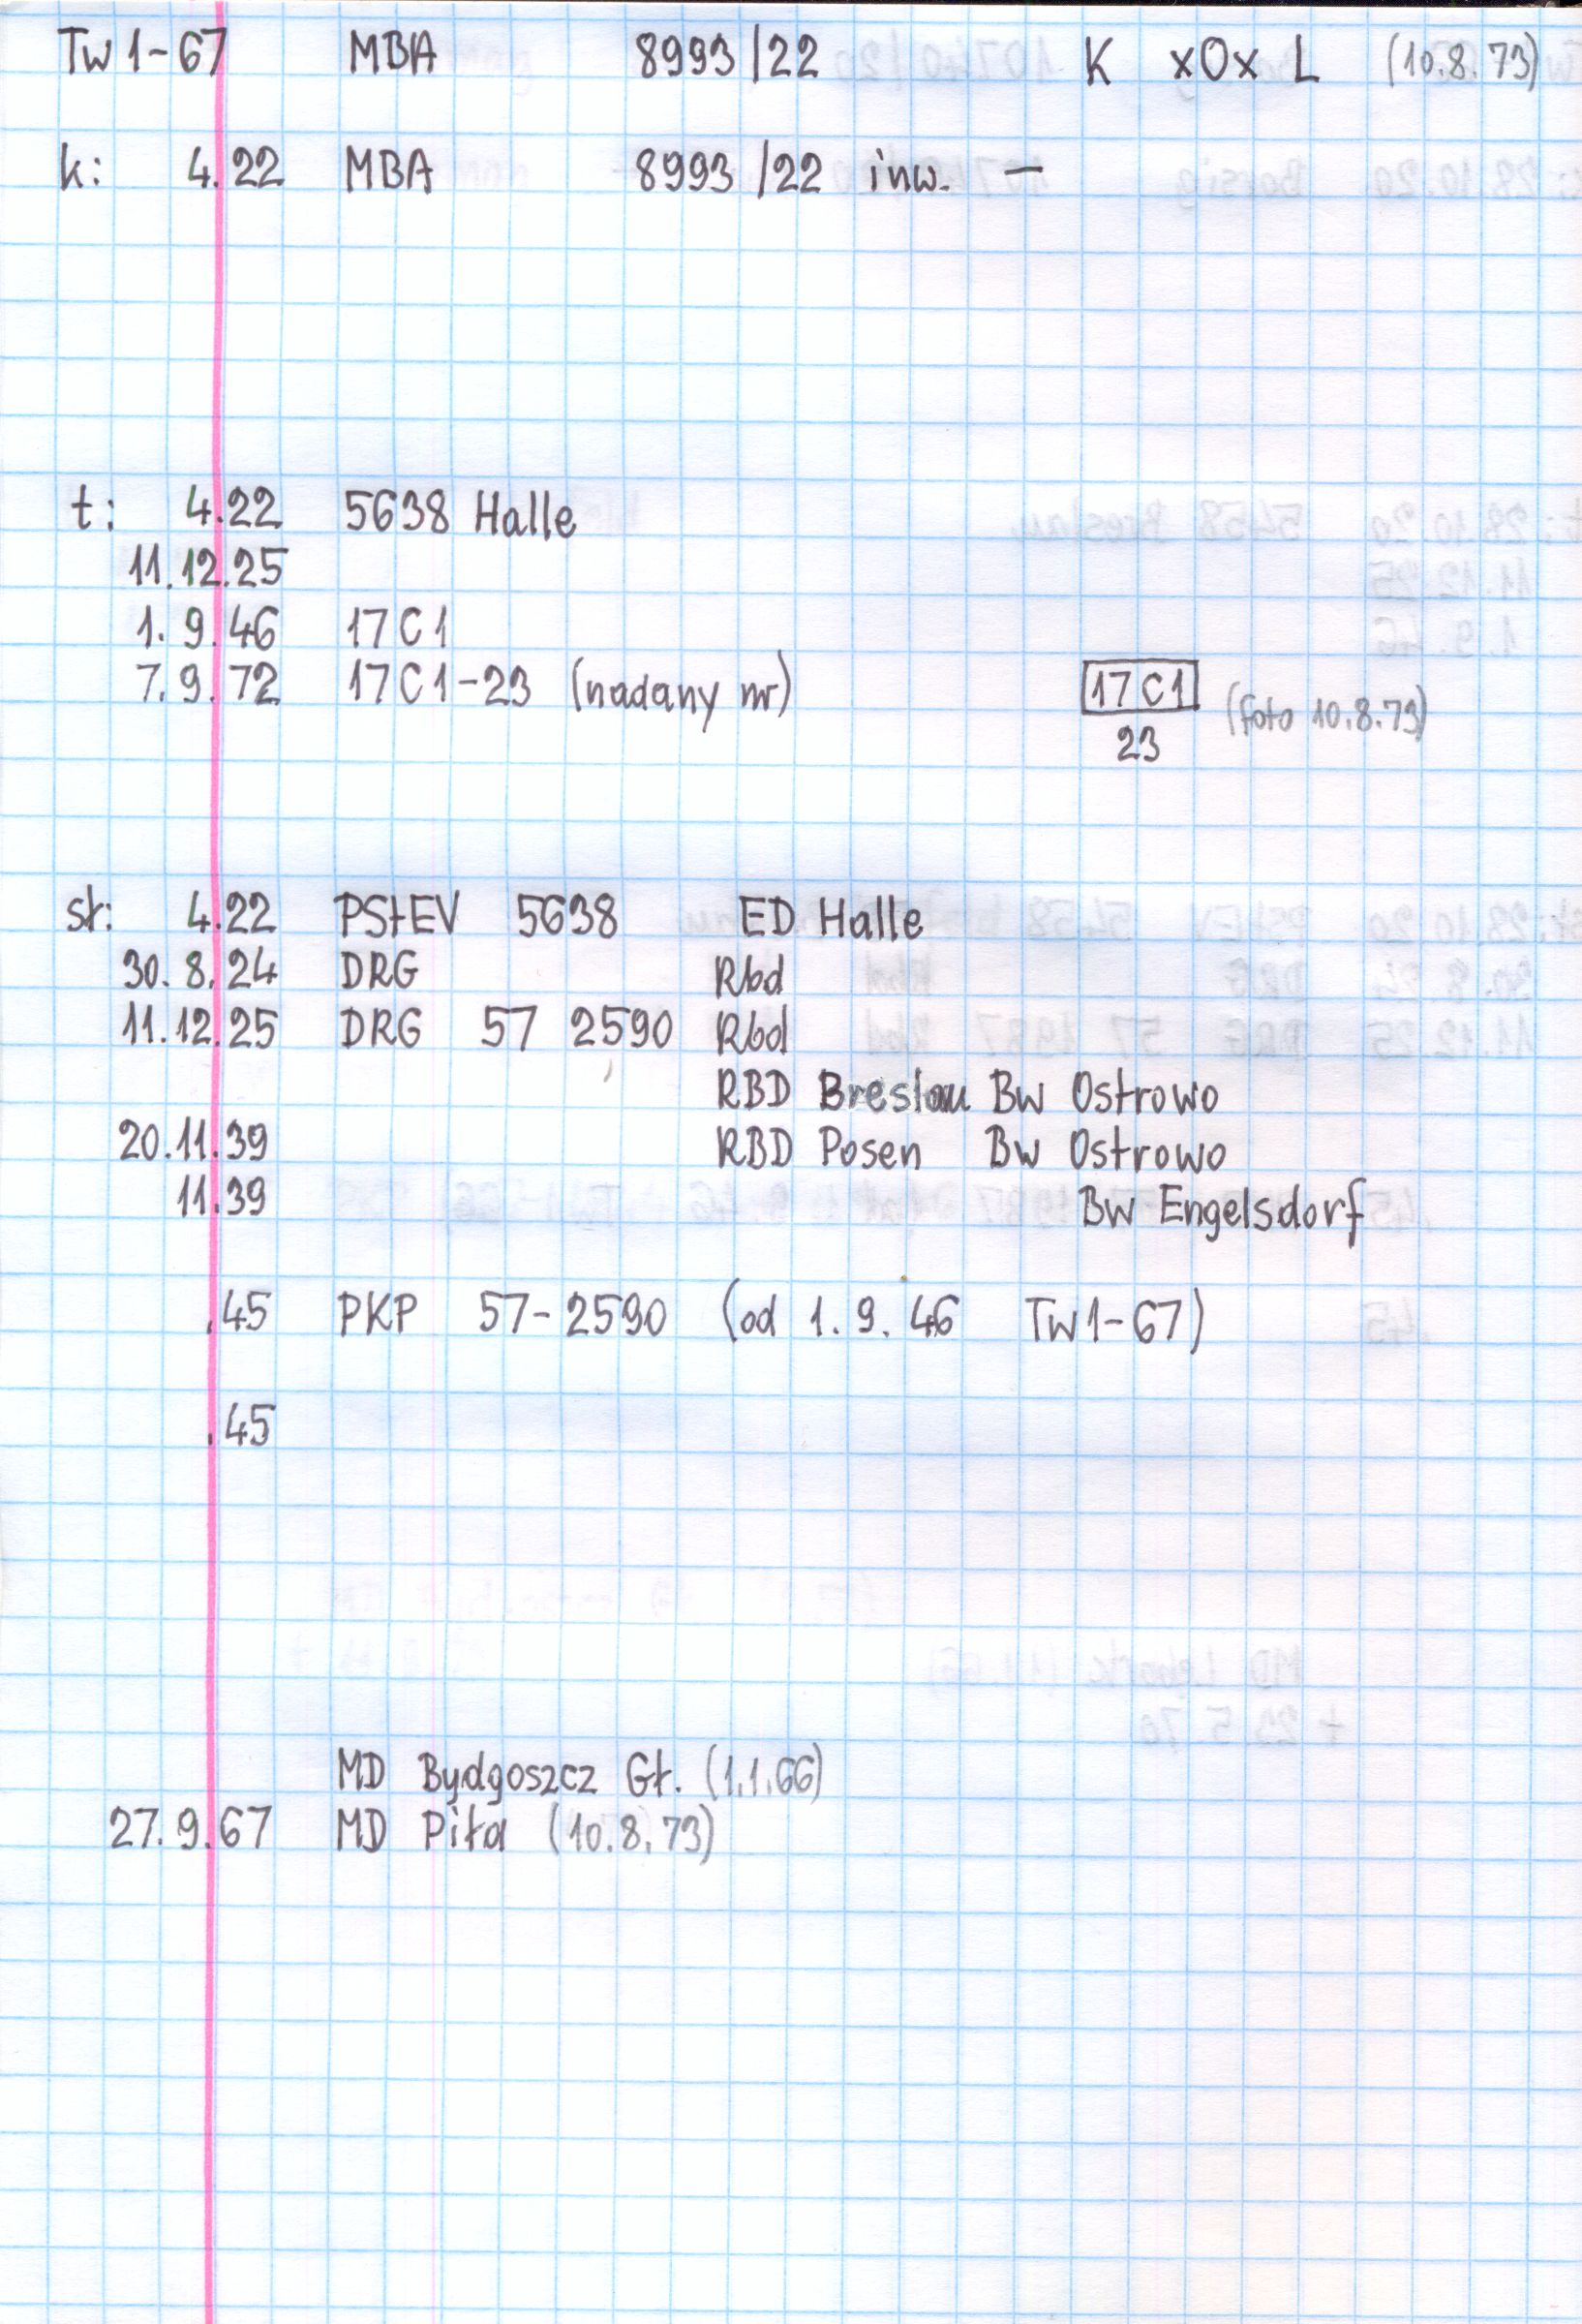 Tw1-67 MBA 8993/22 K xOx L (10.8.73)
k: 4.22 MBA 8993/22 inw. —
t: 4.22 5638 Halle
11.12.25
1.9.46 17C1
7.9.72 17C1-23 (nadany nr) 17C1 (foto 10.8.73)
23
st: 4.22 PStEV 5638 ED Halle
30.8.24 DRG Rbd
11.12.25 DRG 57 2590 Rbd
RBD Breslau Bw Ostrowo
20.11.39 RBD Posen Bw Ostrowo
11.39 Bw Engelsdorf
.45 PKP 57-2590 (od 1.9.46 Tw1-67)
.45
MD Bydgoszcz Gł. (1.1.66)
27.9.67 MD Piła (10.8.73)